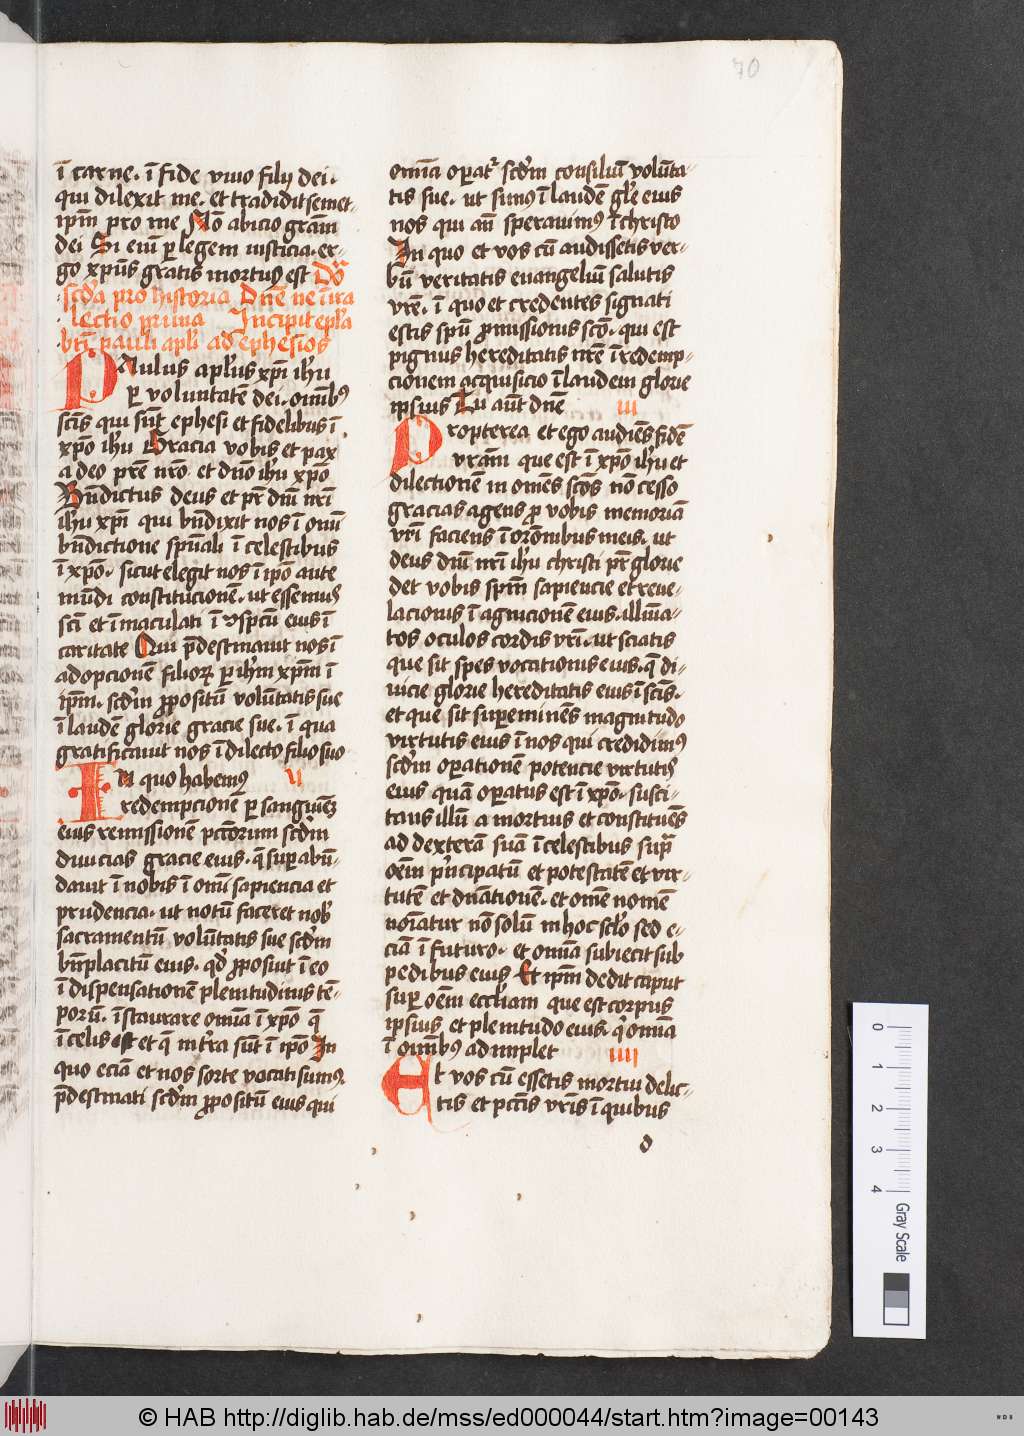 70
ī carne. ī fide viuo filij dei.
qui dilexit me. et tradidit semet-
ip̄m pro me Nō abicio grām
dei Si eiū p̲ legem iusticia. er-
go xp̄us gratis mortuꝰ est
scd̄a pro historia Dn̄e ne ī ira
lectio prima Incipit ep̄la
bt̄i pauli apl̄i ad ephesios
Paulus apl̄us xp̄i ih̄u
ꝑ voluntatem̄ dei. oīm̄bꝰ
sc̄is qui sūt ephesi et fidelibus ī
xp̄o ih̄u Gracia vobis et pax
a deo pr̄e nr̄o et dn̄o ih̄u xp̄o
Bn̄dictus deus et pr̄ dn̄i nr̄i
ih̄u xp̄i qui bn̄dixit nos ī om̄i
bn̄dictione spūali ī celestibus
ī xp̄o. sicut elegit nos ī ip̄o ante
mūdi constitucionē. ut essemuꝰ
sc̄i et īmaculati ī ɔspc̄tu eius ī
caritate Qui p̄destinauit nos ī
adopcionē filioꝝ ꝑ ih̄m xp̄m ī
ip̄m. scd̄m ꝓpositū volūtatis sue
ī laudē glorie gracie sue. ī qua
gratificauit nos ī dilecto filio suo
In quo habemꝰ ij
redempcionē ꝑ sanguinē
eius remissionē pctōrum scd̄m
diuicias gracie eius. q̄ suꝑabū-
dauit ī nobis ī om̄i sapiencia et
prudencia. ut notū faceret nob̄
sacramentū volūtatis sue scd̄m
bn̄placitū eius. qd̄ ꝓposuit ī eo
ī dispensationē plenitudinis tē-
porū. īstaurare om̄ia ī xp̄o q̄
ī celis est et q̄ in tra sūt ī ip̄o In
quo eciā et nos sorte vocati sumꝰ
p̄destinati scd̄m ꝓpositū eius qui
om̄ia oꝑat᷑ scd̄m consiliū volūta-
tis sue. ut simꝰ ī laudē gl̄e eius
nos qui an̄ sperauimꝰ ī christo
In quo et vos cū audissetis ver-
bū veritatis euangeliū salutis
vr̄e. ī quo et credentes signati
estis spū ꝓmissionis scō. qui est
pignus hereditatis nr̄e ī redemp-
cionem acquisicio ī laudem glorie
ipsius Tu aūt dn̄e iii
Propterea et ego audiēs fidē
vrām que est ī xp̄o ih̄u et
dilectionē in om̄es sc̄os nō cesso
gracias agens ꝓ vobis memoriā
vr̄i faciens ī orōnibus meis. ut
deus dn̄i nr̄i ih̄u christi pr̄ glorie
det vobis spm̄ sapiencie et reue-
lacionis ī agnicionē eius. illūīa-
tos oculos cordis vr̄i. ut sciatis
que sit spes vocationis eius. q̄ di-
uicie glorie hereditatis eius ī sc̄is.
et que sit suꝑeminēs magnitudo
virtutis eius ī nos qui credidimꝰ
scd̄m oꝑationē potencie virtutis
eius quā oꝑatus est ī xp̄o. susci-
tans illū a mortuis et constituēs
ad dexterā suā ī celestibus supͣ
oēm pͥncipatū et potestatē et vir-
tutē et dn̄ationē. et om̄e nomē
noīatur nō solū in hoc sclō sed e-
ciā ī futuro. et om̄ia subiecit sub
pedibus eius Et ip̄m dedit caput
suꝑ oēm eccl̄iam que est corpus
ipsius et plenitudo eius. qͥ om̄ia
ī oīm̄bꝰ adimplet iiii
Et vos cū essetis mortui delic-
tis et pctīs vr̄is ī quibus
0 1 2 3 4
Gray Scale
© HAB http://diglib.hab.de/mss/ed000044/start.htm?image=00143